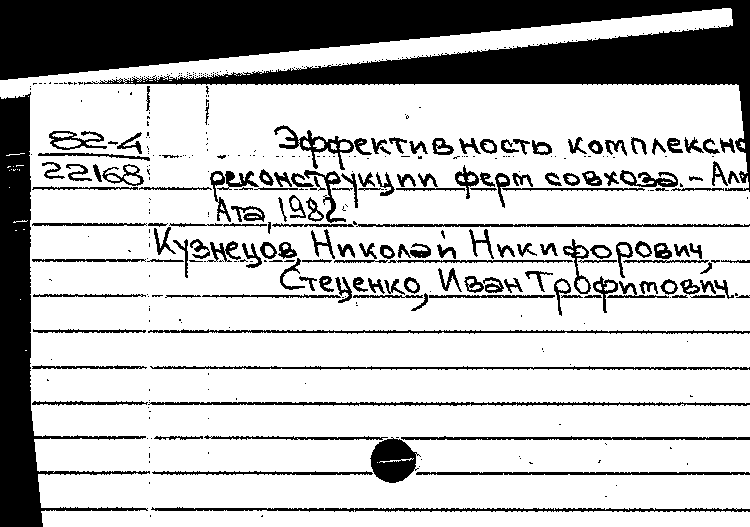 82-4
22168
Эффективность комплексно
реконструкции ферм совхоза. - Алм
Ата, 1982.
Кузнецов, Николай Никифорович,
Стеценко, Иван Трофимович.